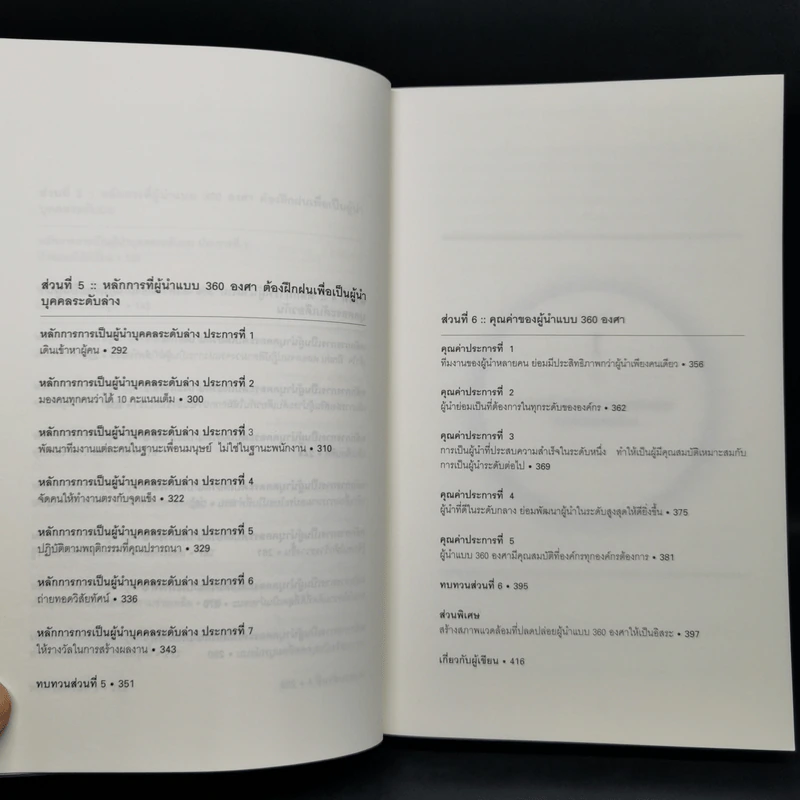 ส่วนที่ 5 :: หลักการที่ผู้นำแบบ 360 องศา ต้องฝึกฝนเพื่อเป็นผู้นำ
บุคคลระดับล่าง
หลักการการเป็นผู้นำบุคคลระดับล่าง ประการที่ 1
เดินเข้าหาผู้คน • 292
หลักการการเป็นผู้นำบุคคลระดับล่าง ประการที่ 2
มองคนทุกคนว่าได้ 10 คะแนนเต็ม • 300
หลักการการเป็นผู้นำบุคคลระดับล่าง ประการที่ 3
พัฒนาทีมงานแต่ละคนในฐานะเพื่อนมนุษย์ ไม่ใช่ในฐานะพนักงาน • 310
หลักการการเป็นผู้นำบุคคลระดับล่าง ประการที่ 4
จัดคนให้ทำงานตรงกับจุดแข็ง • 322
หลักการการเป็นผู้นำบุคคลระดับล่าง ประการที่ 5
ปฏิบัติตามพฤติกรรมที่คุณปรารถนา • 329
หลักการการเป็นผู้นำบุคคลระดับล่าง ประการที่ 6
ถ่ายทอดวิสัยทัศน์ • 336
หลักการการเป็นผู้นำบุคคลระดับล่าง ประการที่ 7
ให้รางวัลในการสร้างผลงาน • 343
ทบทวนส่วนที่ 5 • 351
ส่วนที่ 6 :: คุณค่าของผู้นำแบบ 360 องศา
คุณค่าประการที่ 1
ทีมงานของผู้นำหลายคน ย่อมมีประสิทธิภาพกว่าผู้นำเพียงคนเดียว • 356
คุณค่าประการที่ 2
ผู้นำย่อมเป็นที่ต้องการในทุกระดับขององค์กร • 362
คุณค่าประการที่ 3
การเป็นผู้นำที่ประสบความสำเร็จในระดับหนึ่ง ทำให้เป็นผู้มีคุณสมบัติเหมาะสมกับ
การเป็นผู้นำระดับต่อไป • 369
คุณค่าประการที่ 4
ผู้นำที่ดีในระดับกลาง ย่อมพัฒนาผู้นำในระดับสูงสุดให้ดียิ่งขึ้น • 375
คุณค่าประการที่ 5
ผู้นำแบบ 360 องศามีคุณสมบัติที่องค์กรทุกองค์กรต้องการ • 381
ทบทวนส่วนที่ 6 • 395
ส่วนพิเศษ
สร้างสภาพแวดล้อมที่ปลดปล่อยผู้นำแบบ 360 องศาให้เป็นอิสระ • 397
เกี่ยวกับผู้เขียน • 416